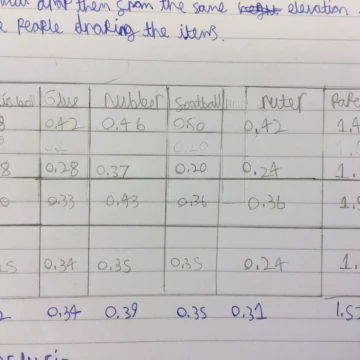 drop then from the same elevation
people droking the items.
Glue Rubber Football ruter Pape
0.42 0.46 0.50 0.42 1.4
8 0.28 0.37 0.20 0.24 1.
0.33 0.43 0.36 0.36 1.
5 0.34 0.35 0.35 0.24 1.
2 0.34 0.39 0.35 0.31 1.5